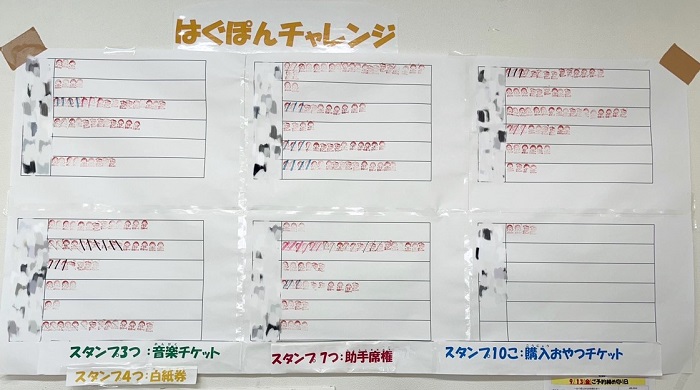 はぐぽんチャレンジ
スタンプ3つ：音楽チケット
スタンプ4つ：白紙券
スタンプ7つ：助手席権
スタンプ10こ：購入おやつチケット